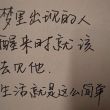 梦里出现的人
醒来时就该
去见他
生活就是这么简单